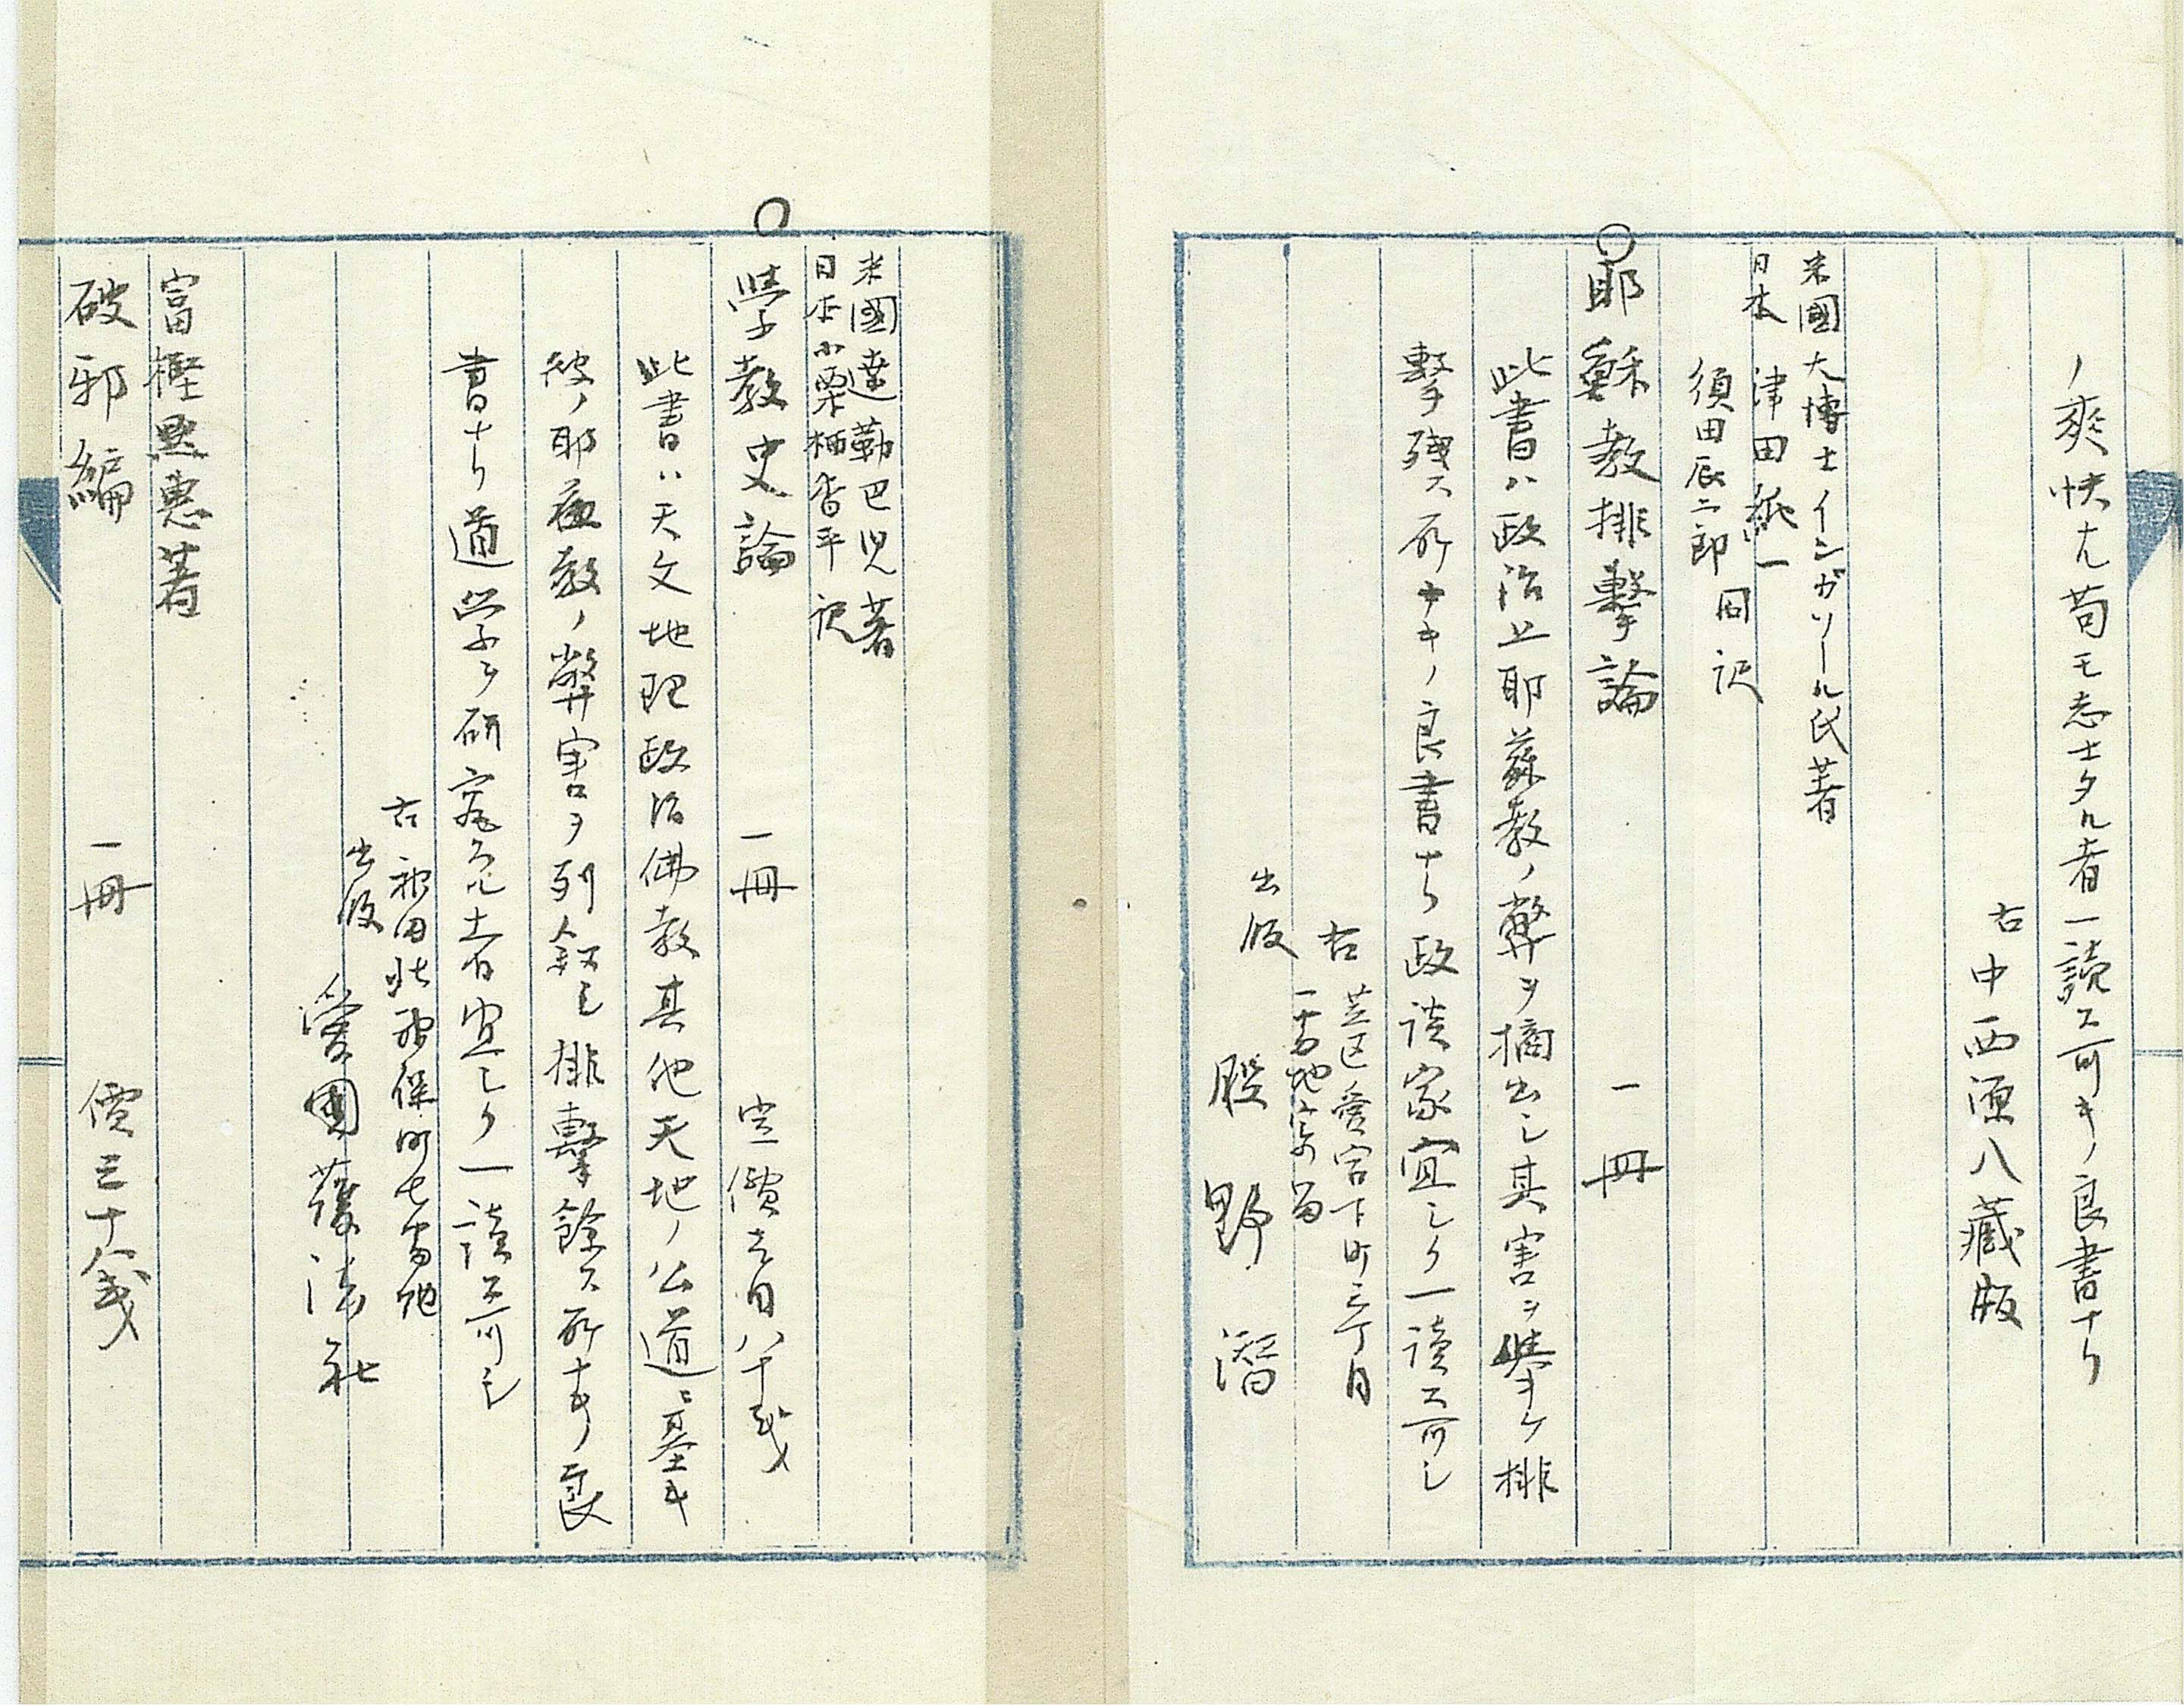 ノ爽快尤苟モ志士タル者一読ス可キノ良書ナリ
右 中西源八蔵版
米國大博士インガソール氏著
日本 津田純一
須田辰二郎 同訳
○耶穌教排撃論 一冊
此書ハ政治上耶蘇教ノ弊ヲ摘出シ其害ヲ挙ケ排
撃残ス所ナキノ良書ナリ政談家宜シク一読ス可シ
右 芝区愛宕下町三丁目
一番地寄留
出版 股野潜
米國達勒巴児著
日本小栗栖香平訳
○學教史論 一冊 定價壱円八十戋
此書ハ天文地理政治佛教其他天地ノ公道ニ基キ
彼ノ耶蘇教ノ弊害ヲ列叙シ排撃餘ス所ナキノ良
書ナリ道学ヲ研究スル者宜シク一読ス可シ
右 神田北神保町七番地
出版 愛國護法社
富樫黙恵著
破邪編 一冊 價三十八戋